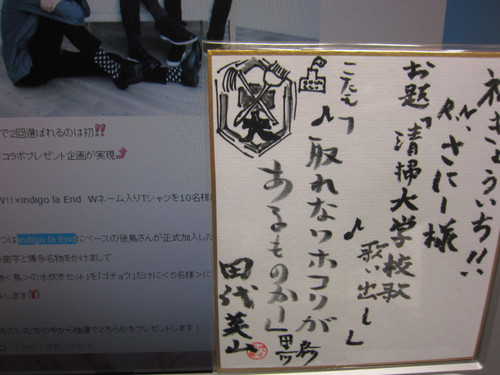 で2回選ばれるのは初!!
コラボプレゼント企画が実現
W!!×indigo la End Wネーム入りTシャツを10名様に
つはindigo la Endにベースの後鳥さんが正式加入した
苗字と博多名物をかけまして
<鳥>の水炊きセット」を「ゴチョウ」だけに<5名様>に
トします
ただいた方の中から抽選でどちらかをプレゼントします!
祝きょういち!!
ぐっさにー様
お題「清掃大学校歌
歌い出し」
こたえ
♪「取れないホコリが
あるものかー♪
田代英山